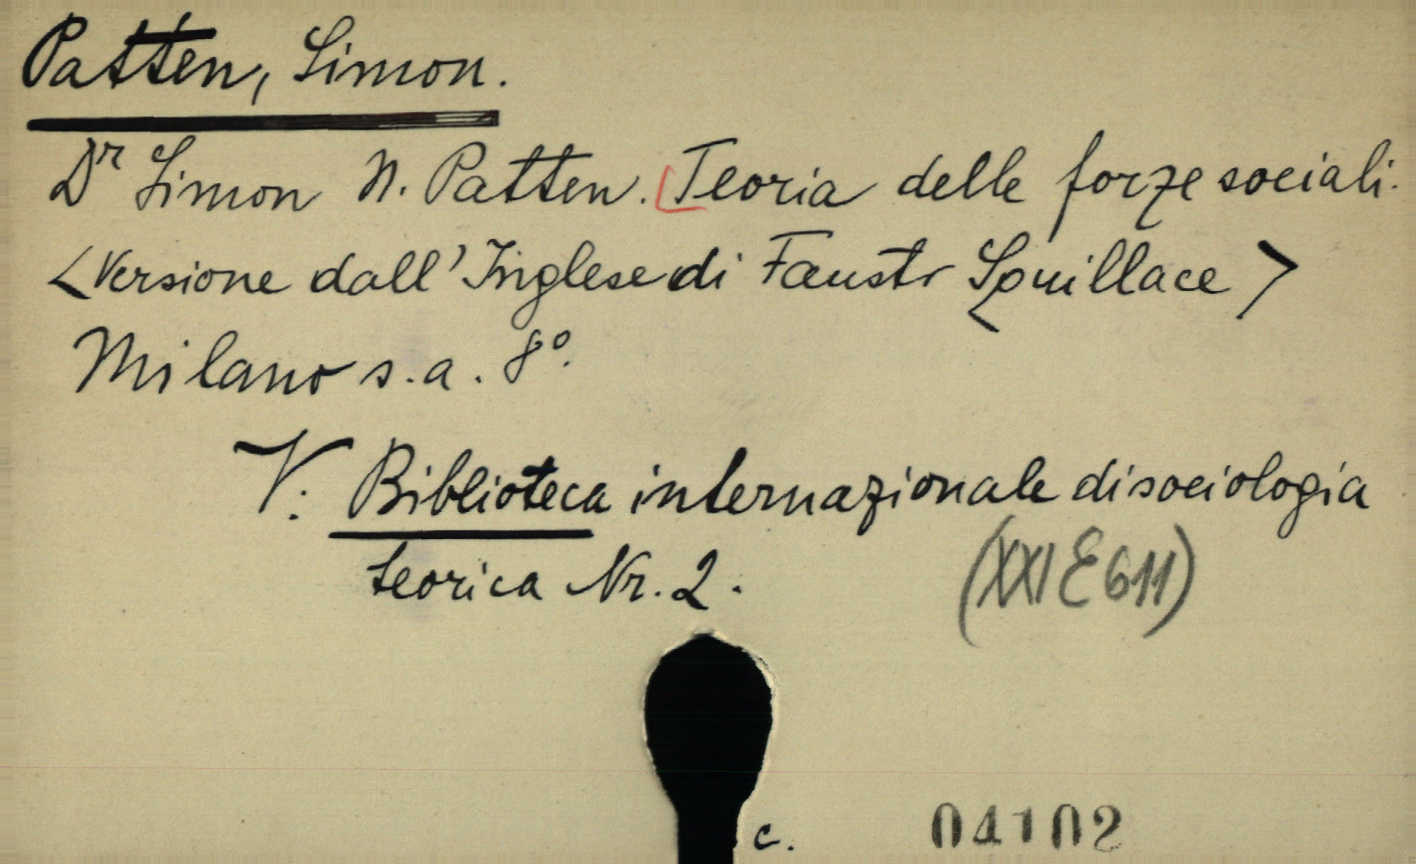 Patten, Simon.
Dr Simon N. Patten. Teoria delle forze sociali.
<Versione dall' Inglese di Fausto Squillace>
Milano s. a. 8°.
V. Biblioteca internazionale di sociologia
teorica Nr. 2.
(XXI E 611)
c.
04102